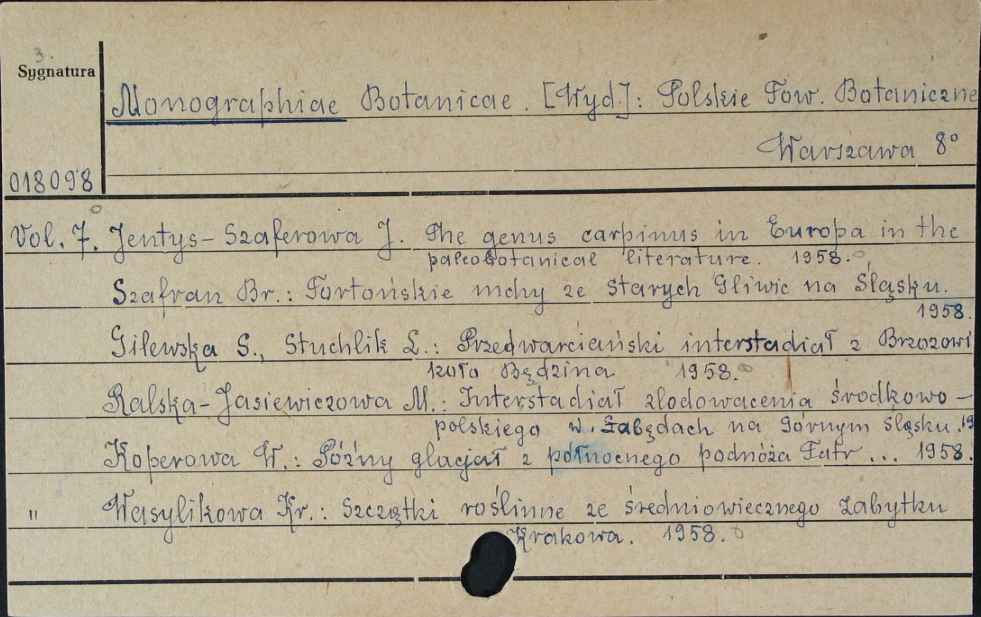 3.
Sygnatura
Monographiae Botanicae. [Wyd.]: Polskie Tow. Botaniczne
Warszawa 8°
018098
Vol. 7. Jentys-Szaferowa J. The genus carpinus in Europa in the
paleobotanical literature. 1958.
Szafran Br.: Tortońskie mchy ze starych Gliwic na Śląsku.
1958.
Gilewska S., Stuchlik L.: Przedwarciański interstadiał z Brzozowi
koło Będzina 1958.
Ralska-Jasiewiczowa M.: Interstadiał zlodowacenia środkowo-
polskiego w Łabędach na Górnym Śląsku. 19
Koperowa W.: Późny glacjał z północnego podnóża Tatr ... 1958.
" Wasylikowa Kr.: Szczątki roślinne ze średniowiecznego zabytku
Krakowa. 1958.